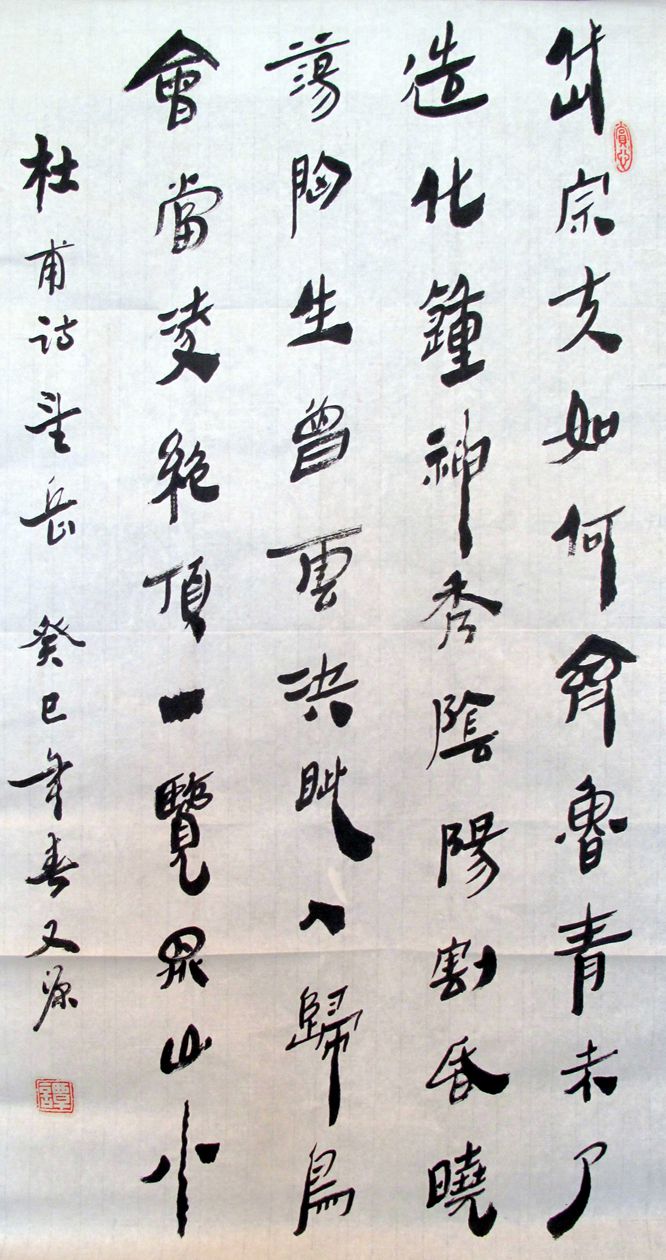 岱宗夫如何齊魯青未了
造化鍾神秀陰陽割昏曉
蕩胸生曾雲決眦入歸鳥
會當凌絕頂一覽眾山小
杜甫诗望岳 癸巳年春又源
譚